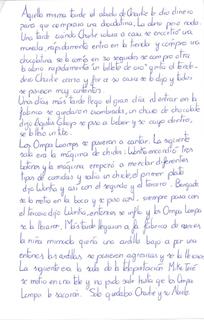 Aquella misma tarde el abuelo de Charlie le dio dinero
para que comprara una chocolatina. La abrio pero nada.
Una tarde cuando Charlie volvia a casa se encontró una
moneda rapidamente entro en la tienda y compro una
chocolatina se la comio en 10 segundos se compro otra
la abrio rapidamente un billete de oro grito el
Charlie corrio y fue a su casa se lo dijo y todos
se pusieron muy contentos.
Unos dias mas tarde llego el gran dia al entrar en la
fabrica se quedaron asombrados, un chico de chocolate
dijo Augustus Gloop se puso a beber y se cayo dentro,
se lo llevo un tubo.
Los Ompa Loompas se pusieron a cantar. La siguiente
sala era la máquina de chicles. Wonka encendió tres
botones y la máquina empezó a mezclar diferentes
tipos de comidas y salio un chicle, el primer plato
dijo Wonka y asi con el segundo y el tercero.
se lo metio en la boca y le paso
el tercero dijo Wonka, entonces se inflo y los Ompa Loompas
se la llevaron. Más tarde llegaron a la fabrica de nueces
la niña mimada queria una ardilla bajo a por una
entonces las ardillas se pusieron agresivas y se la llevaron
La siguiente era la sala de la teleportación Mike
se metio en una tele y no pudo salir hasta que los Ompa
Loompa lo sacaron. Solo quedaba Charlie y su Abuelo.